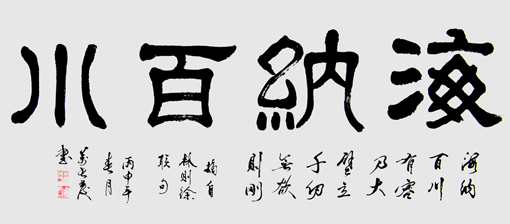 海納百川
海納
百川
有容
乃大
壁立
千仞
無欲
則剛
摘自
林則徐
聯句
丙申年
春月
書